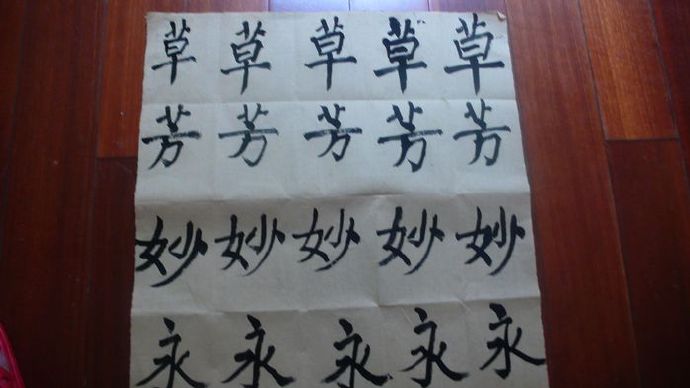 草草草草草
芳芳芳芳芳
妙妙妙妙妙
永永永永永